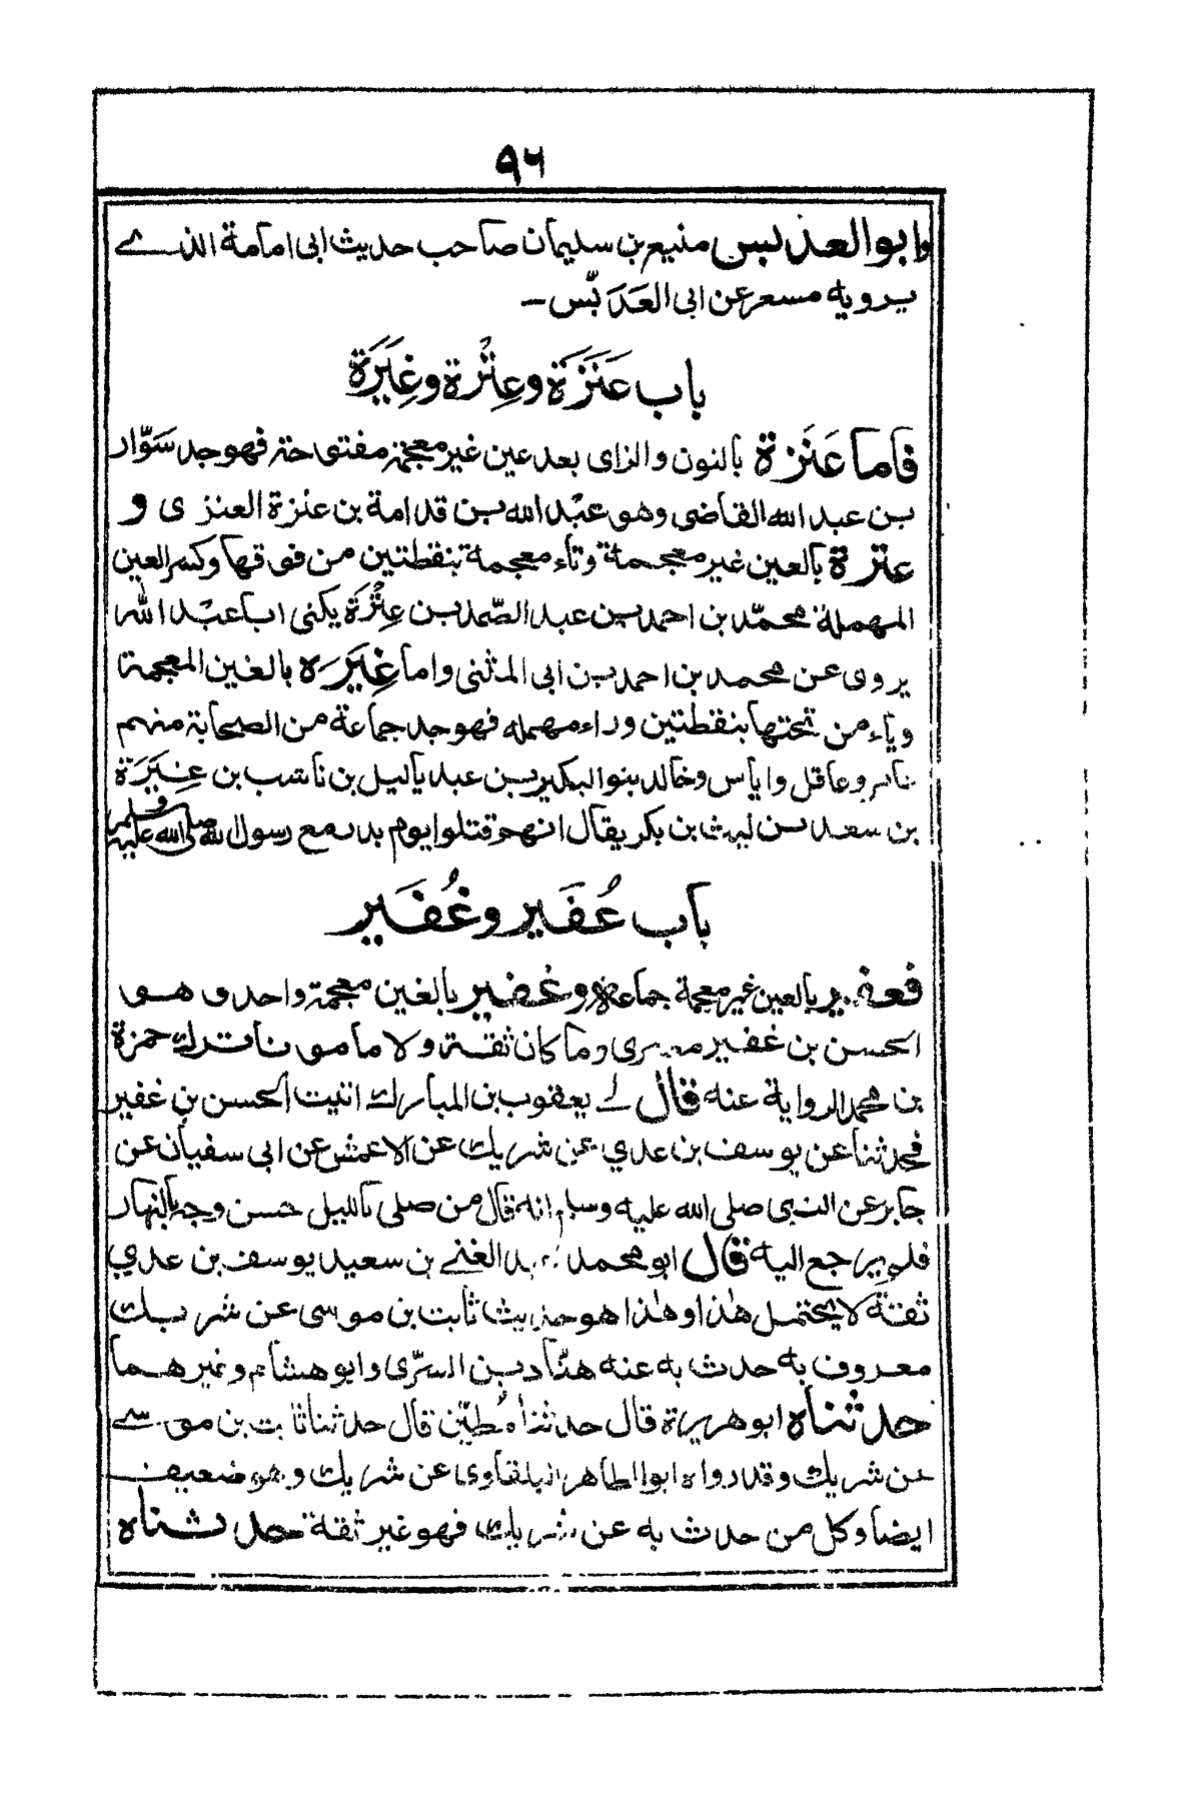 ٩٦
وابو العذبس منيع بن سليمان صاحب حديث ابى امامة الذے
يرويه مسعر عن ابى العَدَبَّس —
باب عَنَزَة وعِتْرة وغِيَرَة
فاما عَنَزة بالنون والزاى بعد عين غير معجمة مفتوحة فهو جد سَوّار
بن عبد الله القاضى وهو عبْد الله بن قدامة بن عنزة العنزى و
عترة بالعين غير معجمة وتاء معجمة بنقطتين من فوقها وكسر العين
المهملة محمّد بن احمد بن عبد الصّمد بن عِتْرَة يكنى ابا عبْد الله
يروى عن محمد بن احمد بن ابى المثنى واما غِيَرَه بالغين المعجمة
وياء من تحتها بنقطتين وراء مهمله فهو جد جماعة من الصحابة منهم
عاقل واياس وخالد بنو البكير بن عبد ياليل بن ناشب بن غِيَرَة
بن سعد بن ليث بن بكر يقال انهم قتلوا يوم بدر مع رسول الله صلى الله عليه وسلم
باب عُفَير وغُفَير
فعفير بالعين غير معجمة جماعة وغُفير بالغين معجمة واحد وهو
الحسن بن غفير مصرى وما كان ثقة ولا مامونا ترك حمزة
بن محمد الرواية عنه قال لے يعقوب بن المبارك اتيت الحسن بن غفير
فحدثنا عن يوسف بن عدي عن شريك عن الاعمش عن ابى سفيان عن
جابر عن النبى صلى الله عليه وسلم انه قال من صلى بالليل حسن وجهه بالنهار
فلم يراجع اليه قال ابو محمد عبد الغنے بن سعيد يوسف بن عدي
ثقة لا يحتمل هٰذا وهٰذا هو حديث ثابت بن موسى عن شريك
معروف به حدث به عنه هنّاد بن السرّى وابو هشام وغيرهما
حدثناه ابو هريرة قال حدثنا مُطيّن قال حدثنا ثابت بن موسے
عن شريك وقد رواه ابو الطاهر البلقاوى عن شريك وهو ضعيف
ايضا وكل من حدث به عن شريك فهو غير ثقة حدثناه